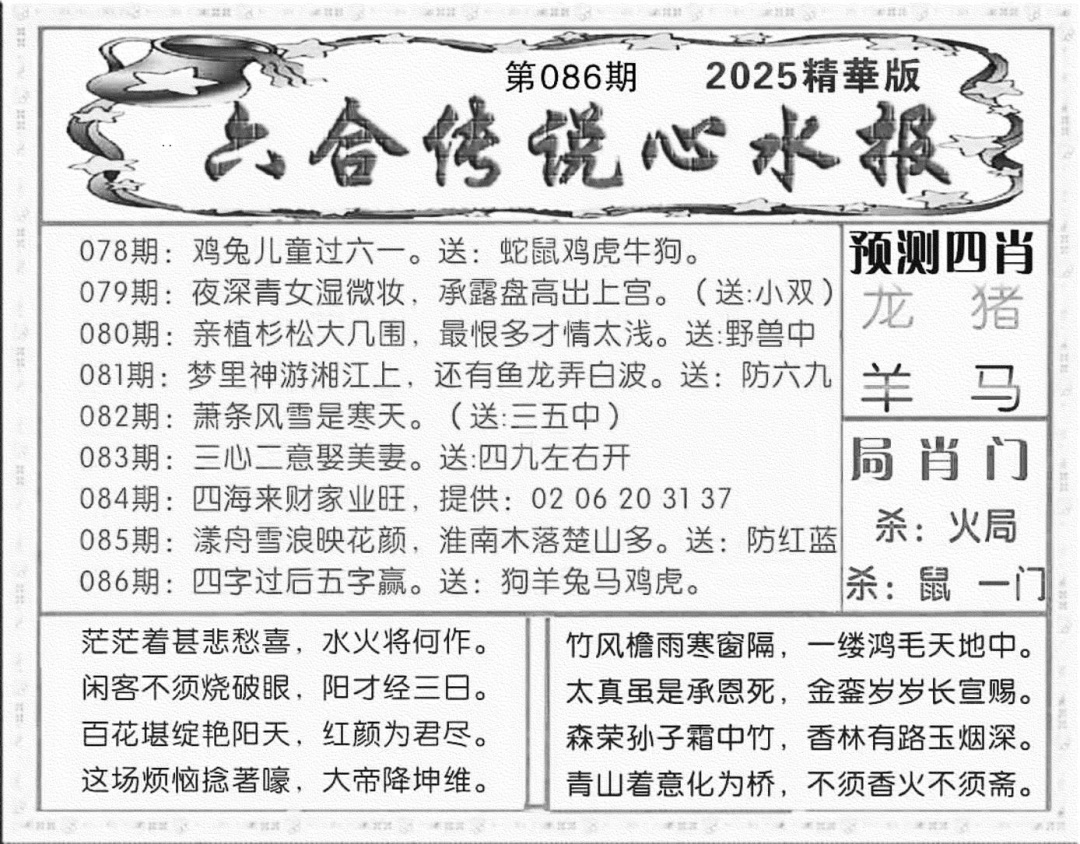 第086期 2025精華版
六合传说心水报
078期：鸡兔儿童过六一。送：蛇鼠鸡虎牛狗。
079期：夜深青女湿微妆，承露盘高出上宫。（送:小双）
080期：亲植杉松大几围，最恨多才情太浅。送:野兽中
081期：梦里神游湘江上，还有鱼龙弄白波。送：防六九
082期：萧条风雪是寒天。（送:三五中）
083期：三心二意娶美妻。送:四九左右开
084期：四海来财家业旺，提供：02 06 20 31 37
085期：漾舟雪浪映花颜，淮南木落楚山多。送：防红蓝
086期：四字过后五字赢。送：狗羊兔马鸡虎。
预测四肖
龙 猪
羊 马
局肖门
杀：火局
杀：鼠 一门
茫茫着甚悲愁喜，水火将何作。
闲客不须烧破眼，阳才经三日。
百花堪绽艳阳天，红颜为君尽。
这场烦恼捻著嚎，大帝降坤维。
竹风檐雨寒窗隔，一缕鸿毛天地中。
太真虽是承恩死，金銮岁岁长宣赐。
森荣孙子霜中竹，香林有路玉烟深。
青山着意化为桥，不须香火不须斋。